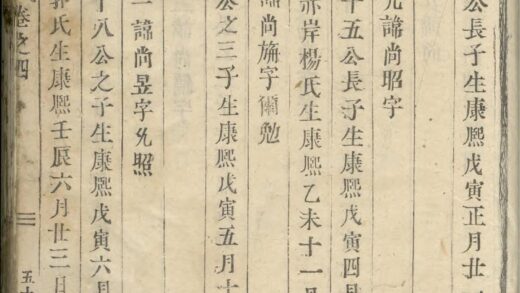 公長子生康熙戊寅正月廿
諱尚昭字
十五公長子生康熙戊寅四月
赤岸楊氏生康熙乙未十一月
諱尚旃字爾勉
公之三子生康熙戊寅五月十
二諱尚昱字允照
十八公之子生康熙戊寅六月
郭氏生康熙壬辰六月廿三日
卷之四
三
五十